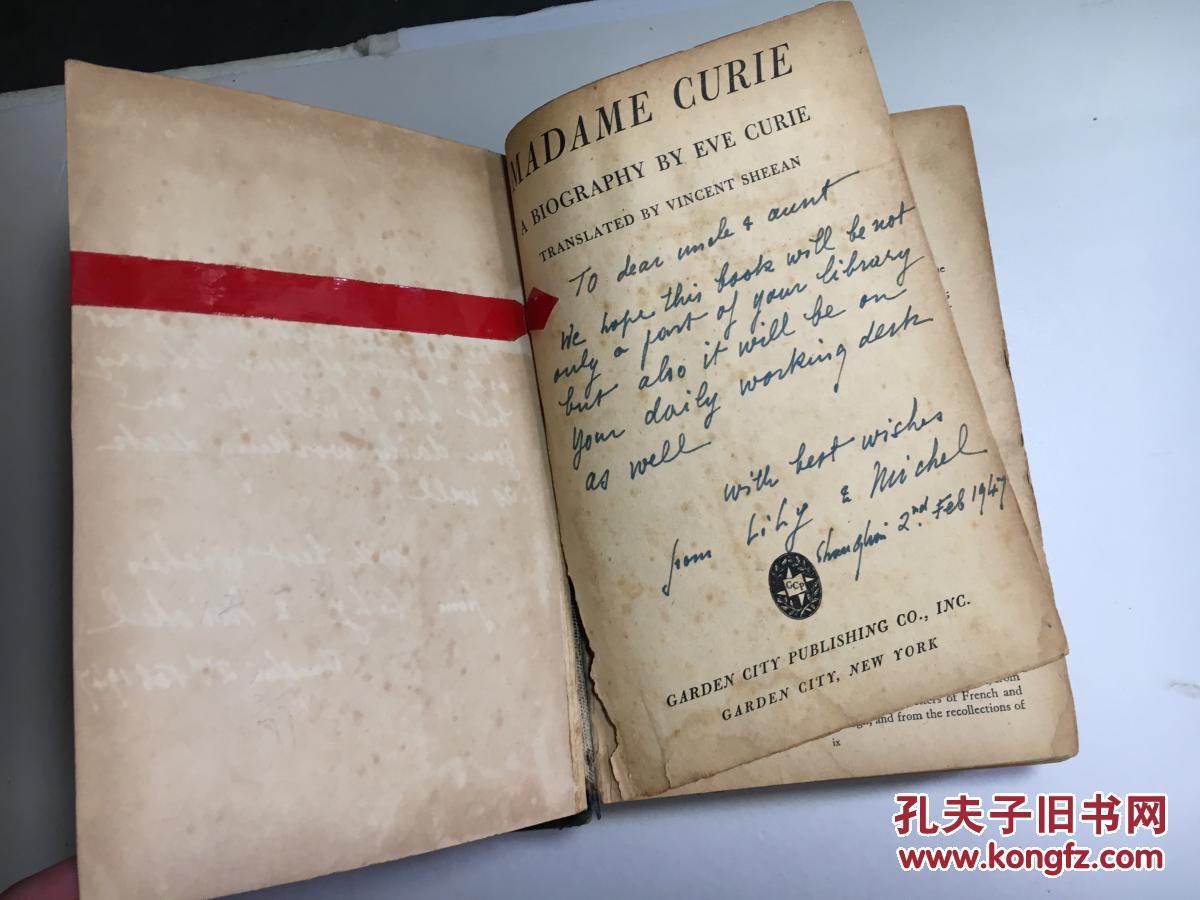 MADAME CURIE
A BIOGRAPHY BY EVE CURIE
TRANSLATED BY VINCENT SHEEAN
To dear uncle & aunt
We hope this book will be not
only a part of your library
but also it will be on
your daily working desk
as well
with best wishes
from Lily & Michel
Shanghai 2nd. Feb 1947
GCP
GARDEN CITY PUBLISHING CO., INC.
GARDEN CITY, NEW YORK
from
of French and
and from the recollections of
ix
孔夫子旧书网
www.kongfz.com